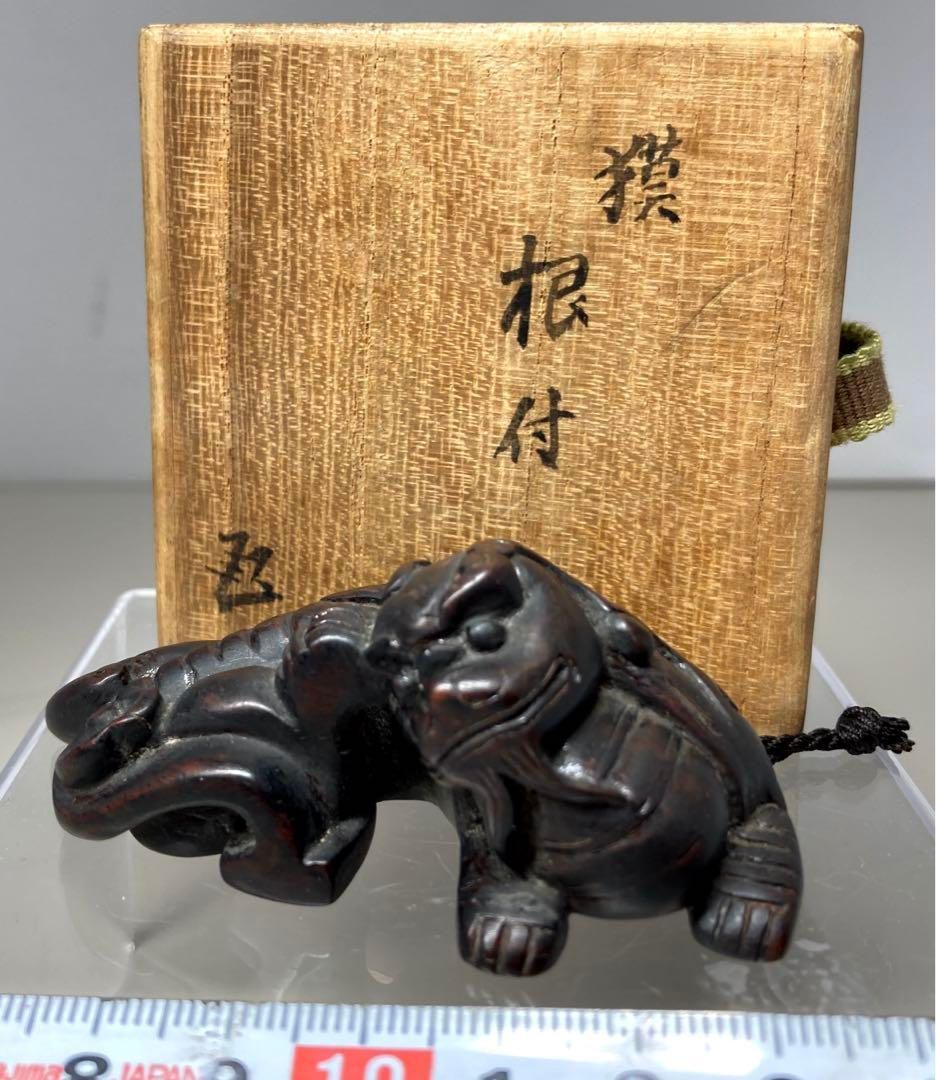 獏
根付
jima 8 JAPAN 9 10 1